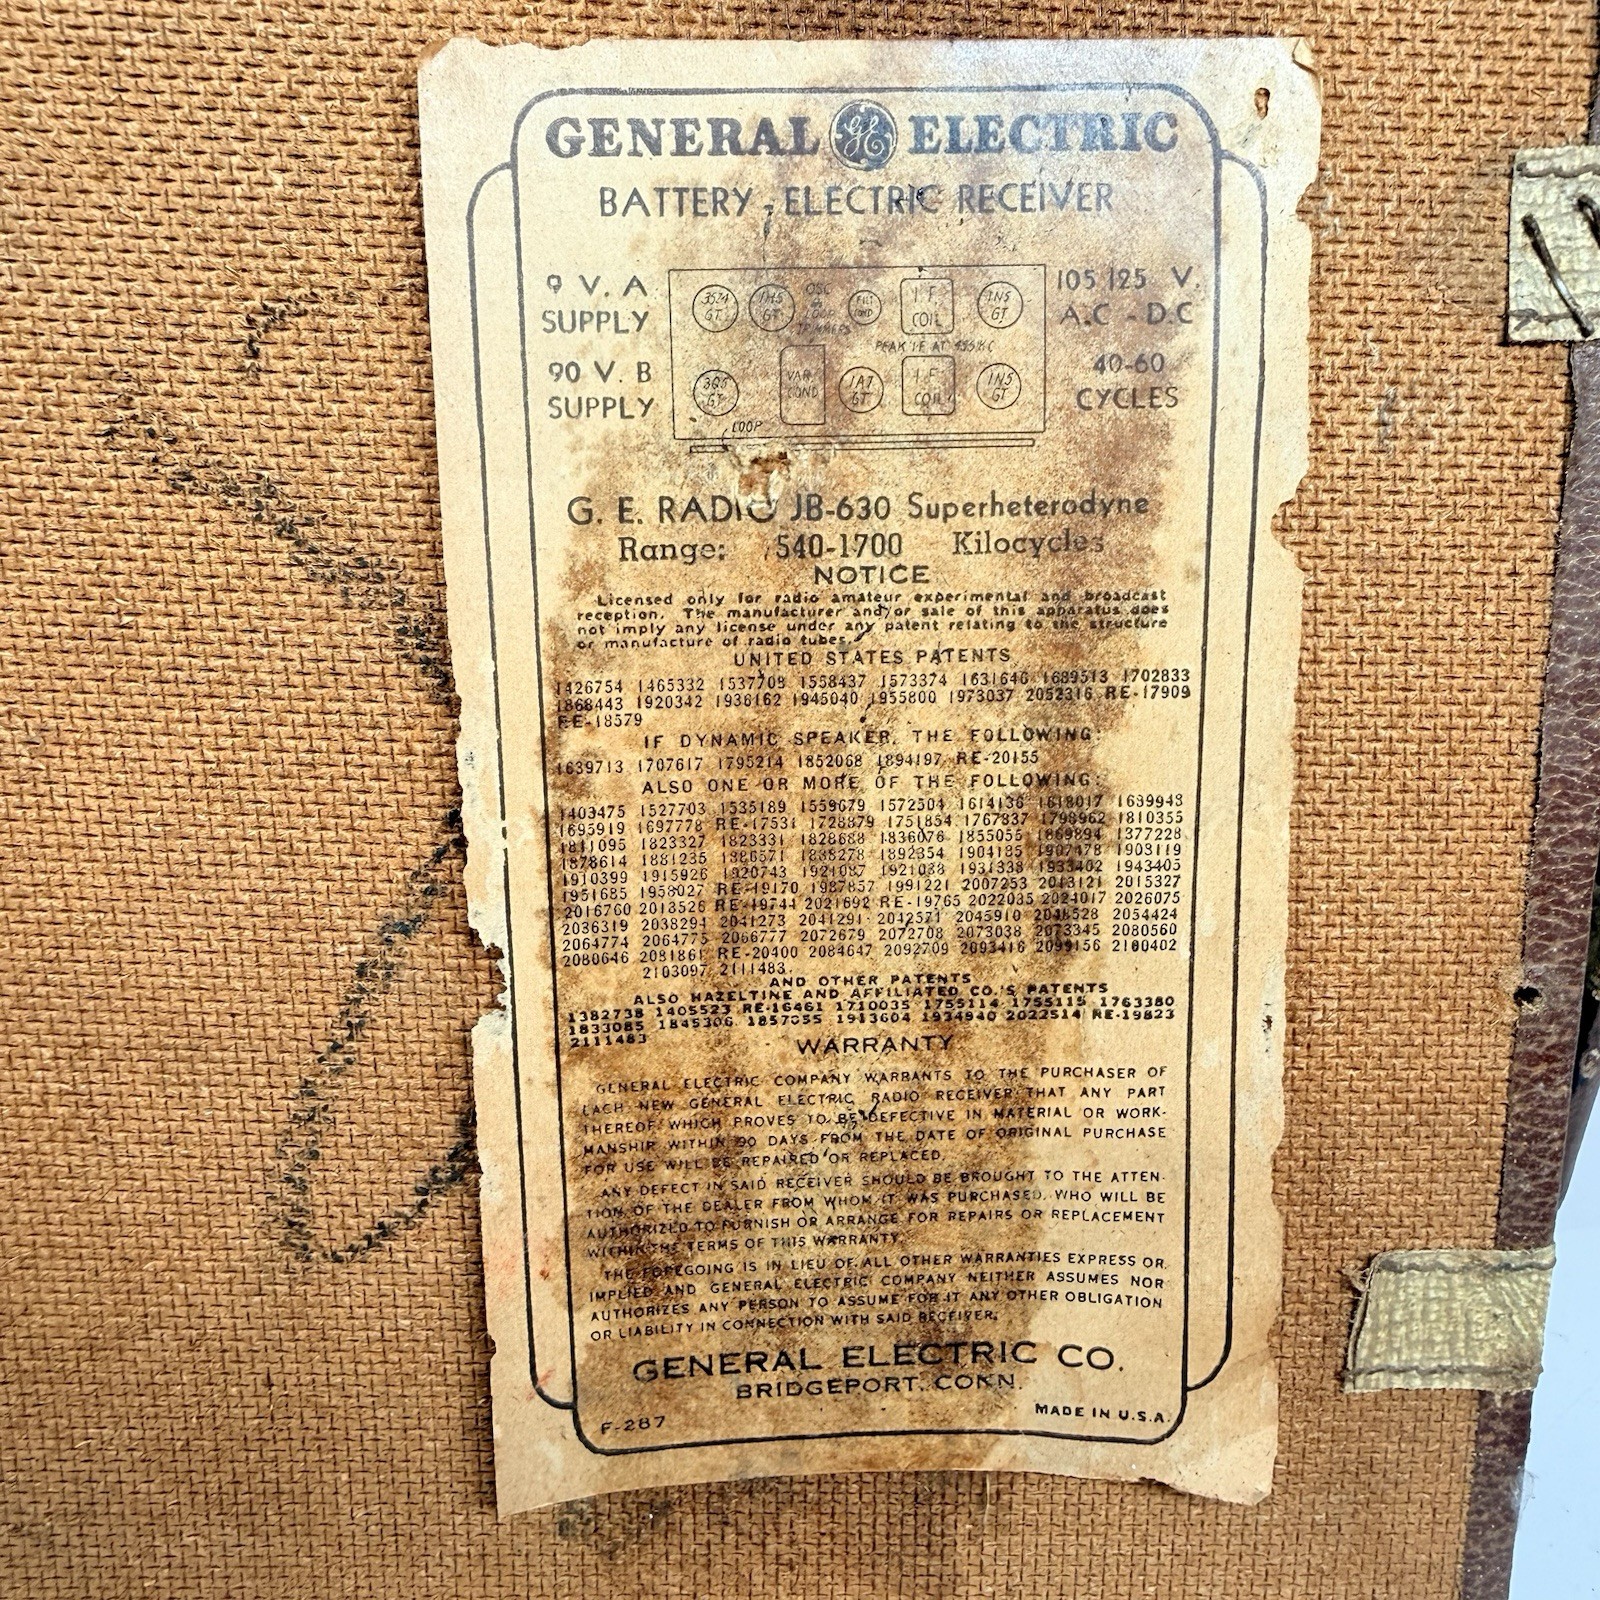 GENERAL GE ELECTRIC
BATTERY-ELECTRIC RECEIVER
9 V. A
SUPPLY
90 V. B
SUPPLY
35Z4 GT
1H5 GT
OSC & LOOP TRIMMERS
FILT COND
I F COIL
1N5 GT
PEAK I F AT 455 KC
3Q5 GT
VAR COND
1A7 GT
I F COIL
1N5 GT
LOOP
105 125 V.
A.C - D.C
40-60
CYCLES
G. E. RADIO JB-630 Superheterodyne
Range: 540-1700 Kilocycles
NOTICE
Licensed only for radio amateur experimental and broadcast
reception. The manufacturer and/or sale of this apparatus does
not imply any license under any patent relating to the structure
or manufacture of radio tubes.
UNITED STATES PATENTS
1426754 1465332 1537708 1558437 1573374 1631646 1689513 1702833
1868443 1920342 1936162 1945040 1955800 1973037 2052316 RE-17909
RE-18579
IF DYNAMIC SPEAKER, THE FOLLOWING:
1639713 1707617 1795214 1852068 1894197 RE-20155
ALSO ONE OR MORE OF THE FOLLOWING:
1403475 1527703 1535189 1559679 1572504 1614136 1618017 1689948
1695919 1697778 RE-17531 1728879 1751854 1767837 1798962 1810355
1811095 1823327 1823331 1828688 1836076 1855055 1869894 1877228
1878614 1881235 1886571 1888278 1892354 1904185 1907478 1908119
1910399 1915926 1920743 1921087 1921088 1931338 1933402 1943405
1951685 1958027 RE-19170 1987857 1991221 2007253 2013121 2015327
2016760 2018526 RE-19744 2021692 RE-19765 2022085 2024017 2026075
2036319 2038294 2041273 2041291 2042571 2045910 2048528 2054424
2064774 2064775 2066777 2072679 2072708 2073038 2073345 2080560
2080646 2081861 RE-20400 2084647 2092709 2093416 2099156 2100402
2103097 2111483.
AND OTHER PATENTS
ALSO HAZELTINE AND AFFILIATED CO.'S PATENTS
1382738 1405523 RE-16461 1710035 1755114 1755115 1763380
1833085 1845306 1857055 1913604 1934940 2022514 RE-19823
2111483
WARRANTY
GENERAL ELECTRIC COMPANY WARRANTS TO THE PURCHASER OF
EACH NEW GENERAL ELECTRIC RADIO RECEIVER THAT ANY PART
THEREOF WHICH PROVES TO BE DEFECTIVE IN MATERIAL OR WORK-
MANSHIP WITHIN 90 DAYS FROM THE DATE OF ORIGINAL PURCHASE
FOR USE WILL BE REPAIRED OR REPLACED.
ANY DEFECT IN SAID RECEIVER SHOULD BE BROUGHT TO THE ATTEN-
TION OF THE DEALER FROM WHOM IT WAS PURCHASED, WHO WILL BE
AUTHORIZED TO FURNISH OR ARRANGE FOR REPAIRS OR REPLACEMENT
WITHIN THE TERMS OF THIS WARRANTY.
THE FOREGOING IS IN LIEU OF ALL OTHER WARRANTIES EXPRESS OR
IMPLIED AND GENERAL ELECTRIC COMPANY NEITHER ASSUMES NOR
AUTHORIZES ANY PERSON TO ASSUME FOR IT ANY OTHER OBLIGATION
OR LIABILITY IN CONNECTION WITH SAID RECEIVER.
GENERAL ELECTRIC CO.
BRIDGEPORT, CONN.
F-287
MADE IN U.S.A.